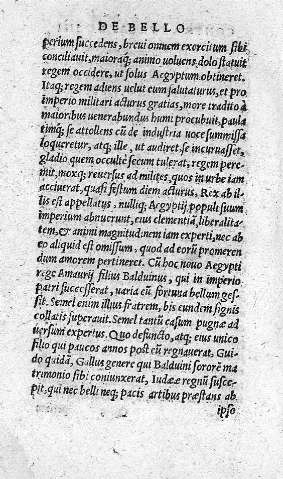 DE BELLO
perium succedens, breui omnem exercitum sibi
conciliauit, maioraq́; animo uoluens, dolo statuit
regem occidere, ut solus Aegyptum obtineret.
Itaq; regem adiens uelut eum salutaturus, et pro
imperio militari acturus gratias, more tradito à
maioribus uenerabundus humi procubuit, paula
timq́; se attollens cū de industria uoce summissa
loqueretur, atq; ille, ut audiret, se incuruasset,
gladio quem occultè secum tulerat, regem pere-
mit, moxq́; reuersus ad milites, quos in urbē iam
acciuerat, quasi festum diem acturus, Rex ab il-
lis est appellatus, nulliq; Aegyptij populi suum
imperium abnuerunt, eius clementiā, liberalita-
tem, et animi magnitudinem iam experti, nec ab
eo aliquid est omissum, quod ad eorū promeren
dum amorem pertineret. Cū hoc nouo Aegypti
rege Amaurij filius Balduinus, qui in imperio
patri successerat, uaria cū fortuna bellum ges-
sit. Semel enim illius fratrem, bis eundem signis
collatis superauit. Semel tantū casum pugnæ ad
uersum expertus. Quo defuncto, atq; eius unico
filio qui paucos annos post eū regnauerat, Gui-
do quidā, Gallus genere qui Balduini sororē ma
trimonio sibi coniunxerat, Iudææ regnū susce-
pit, qui nec belli neq; pacis artibus præstans ab
ipso